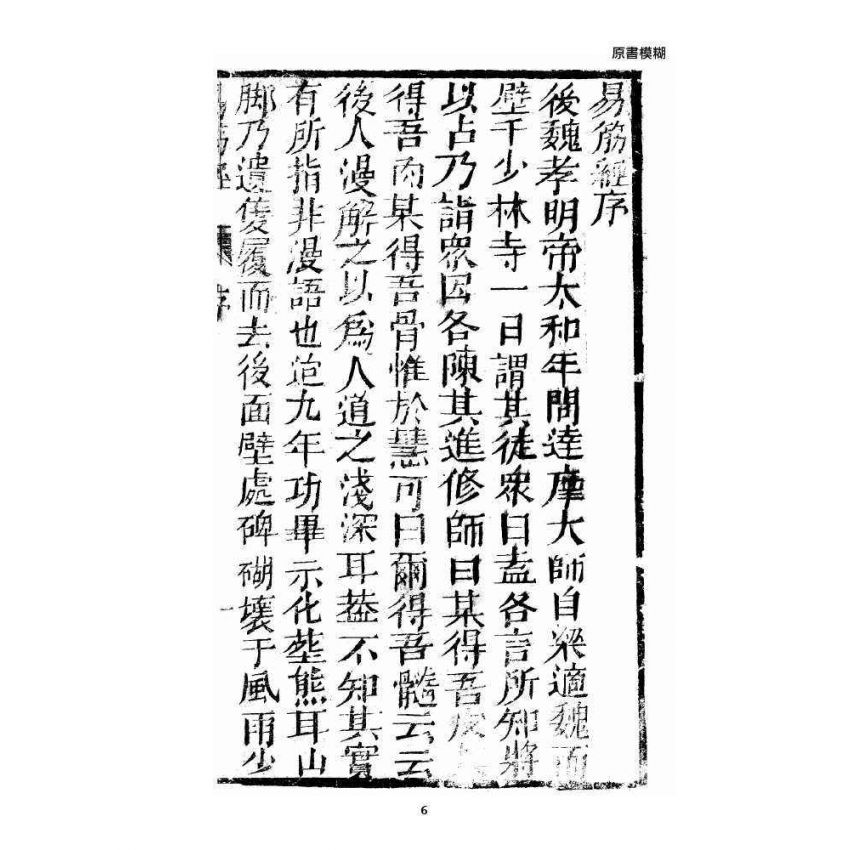 原書模糊
易筋經序
後魏孝明帝太和年間達摩大師自梁適魏面
壁于少林寺一日謂其徒衆曰盍各言所知將
以占乃詣衆因各陳其進修師曰某得吾皮
得吾肉某得吾骨惟於慧可曰爾得吾髓云云
後人漫解之以爲人道之淺深耳葢不知其實
有所指非漫語也迨九年功畢示化塟熊耳山
脚乃遺隻履而去後面壁處碑砌壞于風雨少
易筋經 序 一
6